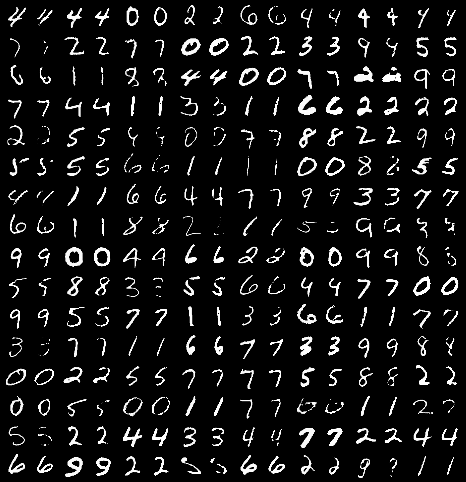 4 4 4 4 0 0 2 2 6 6 4 4 4 4 4 4
7 7 2 2 7 7 0 0 2 2 3 3 9 9 5 5
6 6 1 1 8 8 4 4 0 0 7 7 2 2 9 9
7 7 4 4 1 1 3 3 1 1 6 6 2 2 2 2
2 2 5 5 4 4 0 0 7 7 8 8 2 2 9 9
5 5 5 5 6 6 1 1 1 1 0 0 8 8 5 5
4 4 1 1 6 6 4 4 7 7 9 9 3 3 7 7
6 6 1 1 8 8 2 1 1 5 9 9 3 3
9 9 0 0 4 9 6 6 2 2 0 0 9 9 8 8
5 5 8 8 3 3 5 5 6 6 4 4 7 7 0 0
9 9 5 5 7 7 1 1 3 3 6 6 1 1 7 7
3 3 7 7 1 1 6 6 7 7 3 3 9 9 8 8
0 0 2 2 5 5 7 7 7 7 5 5 8 8 2 2
0 0 5 5 0 0 1 1 7 7 0 0 1 1 2 2
5 5 2 2 4 4 3 3 4 4 7 7 2 2 4 4
6 6 9 9 2 2 5 5 6 6 2 2 9 1 1